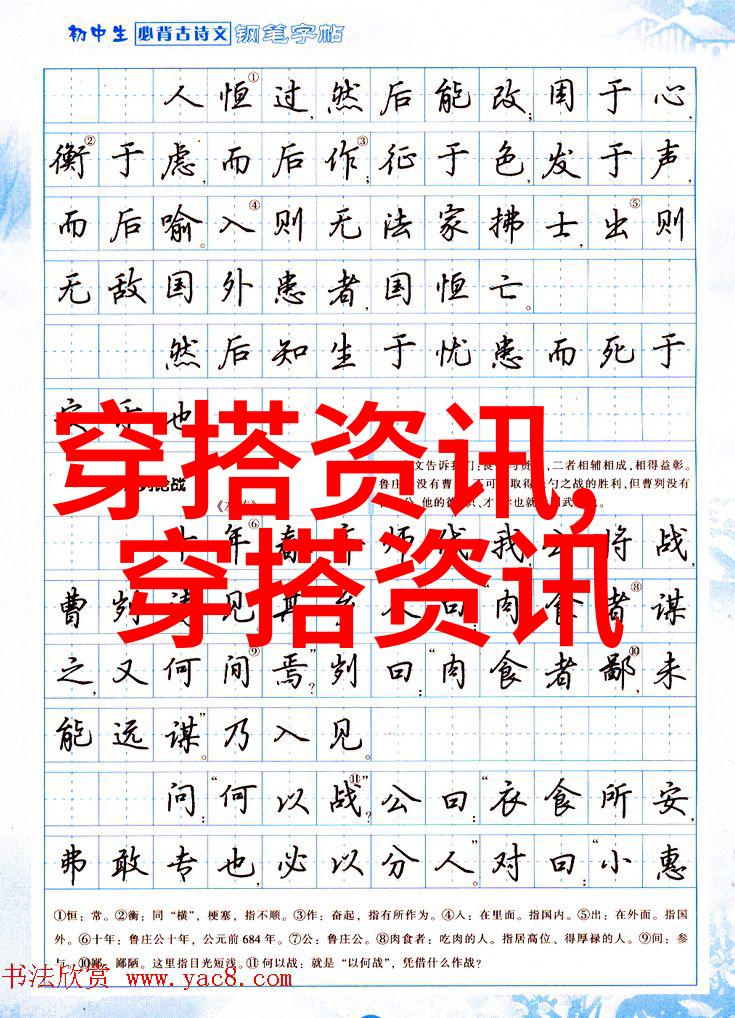 初中生 必背古诗文 钢笔字帖
人恒①过,然后能改;困于心,
衡②于虑,而后作③;征于色,发于声,
而后喻。入④则无法家拂士,出⑤则
无敌国外患者,国恒亡。
然后知生于忧患而死于
也
穿搭资讯,
穿搭资讯
论战
二者相辅相成,相得益彰。
鲁庄 没有曹 不可 取得 勺之战的胜利,但曹刿没有
他的 才 也就
年⑥ 师 我, 将战,
曹刿 见 其 人曰:“肉食者⑧谋
之,又何间⑨焉?”刿曰:“肉食者鄙⑩,未
能远谋。”乃入见。
问:“何以战⑪?”公曰:“衣食所安,
弗敢专也,必以分人。”对曰:“小惠
①恒:常。②衡:同“横”,梗塞,指不顺。③作:奋起,指有所作为。④入:在里面。指国内。⑤出:在外面。指国
外。⑥十年:鲁庄公十年,公元前684年。⑦公:鲁庄公。⑧肉食者:吃肉的人。指居高位、得厚禄的人。⑨间:参
与。⑩鄙:鄙陋。这里指目光短浅。⑪何以战:就是“以何战”,凭借什么作战?
书法欣赏 www.yac8.com